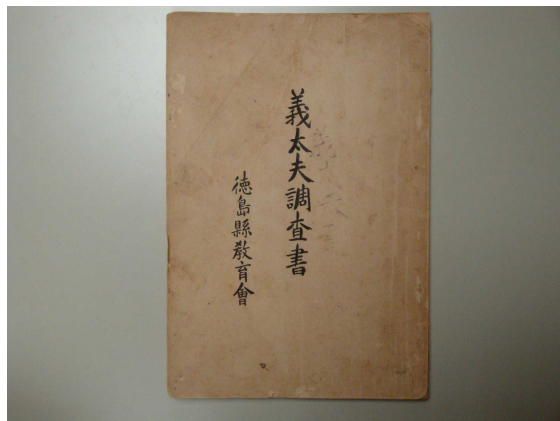 義太夫調査書
徳島縣教育會